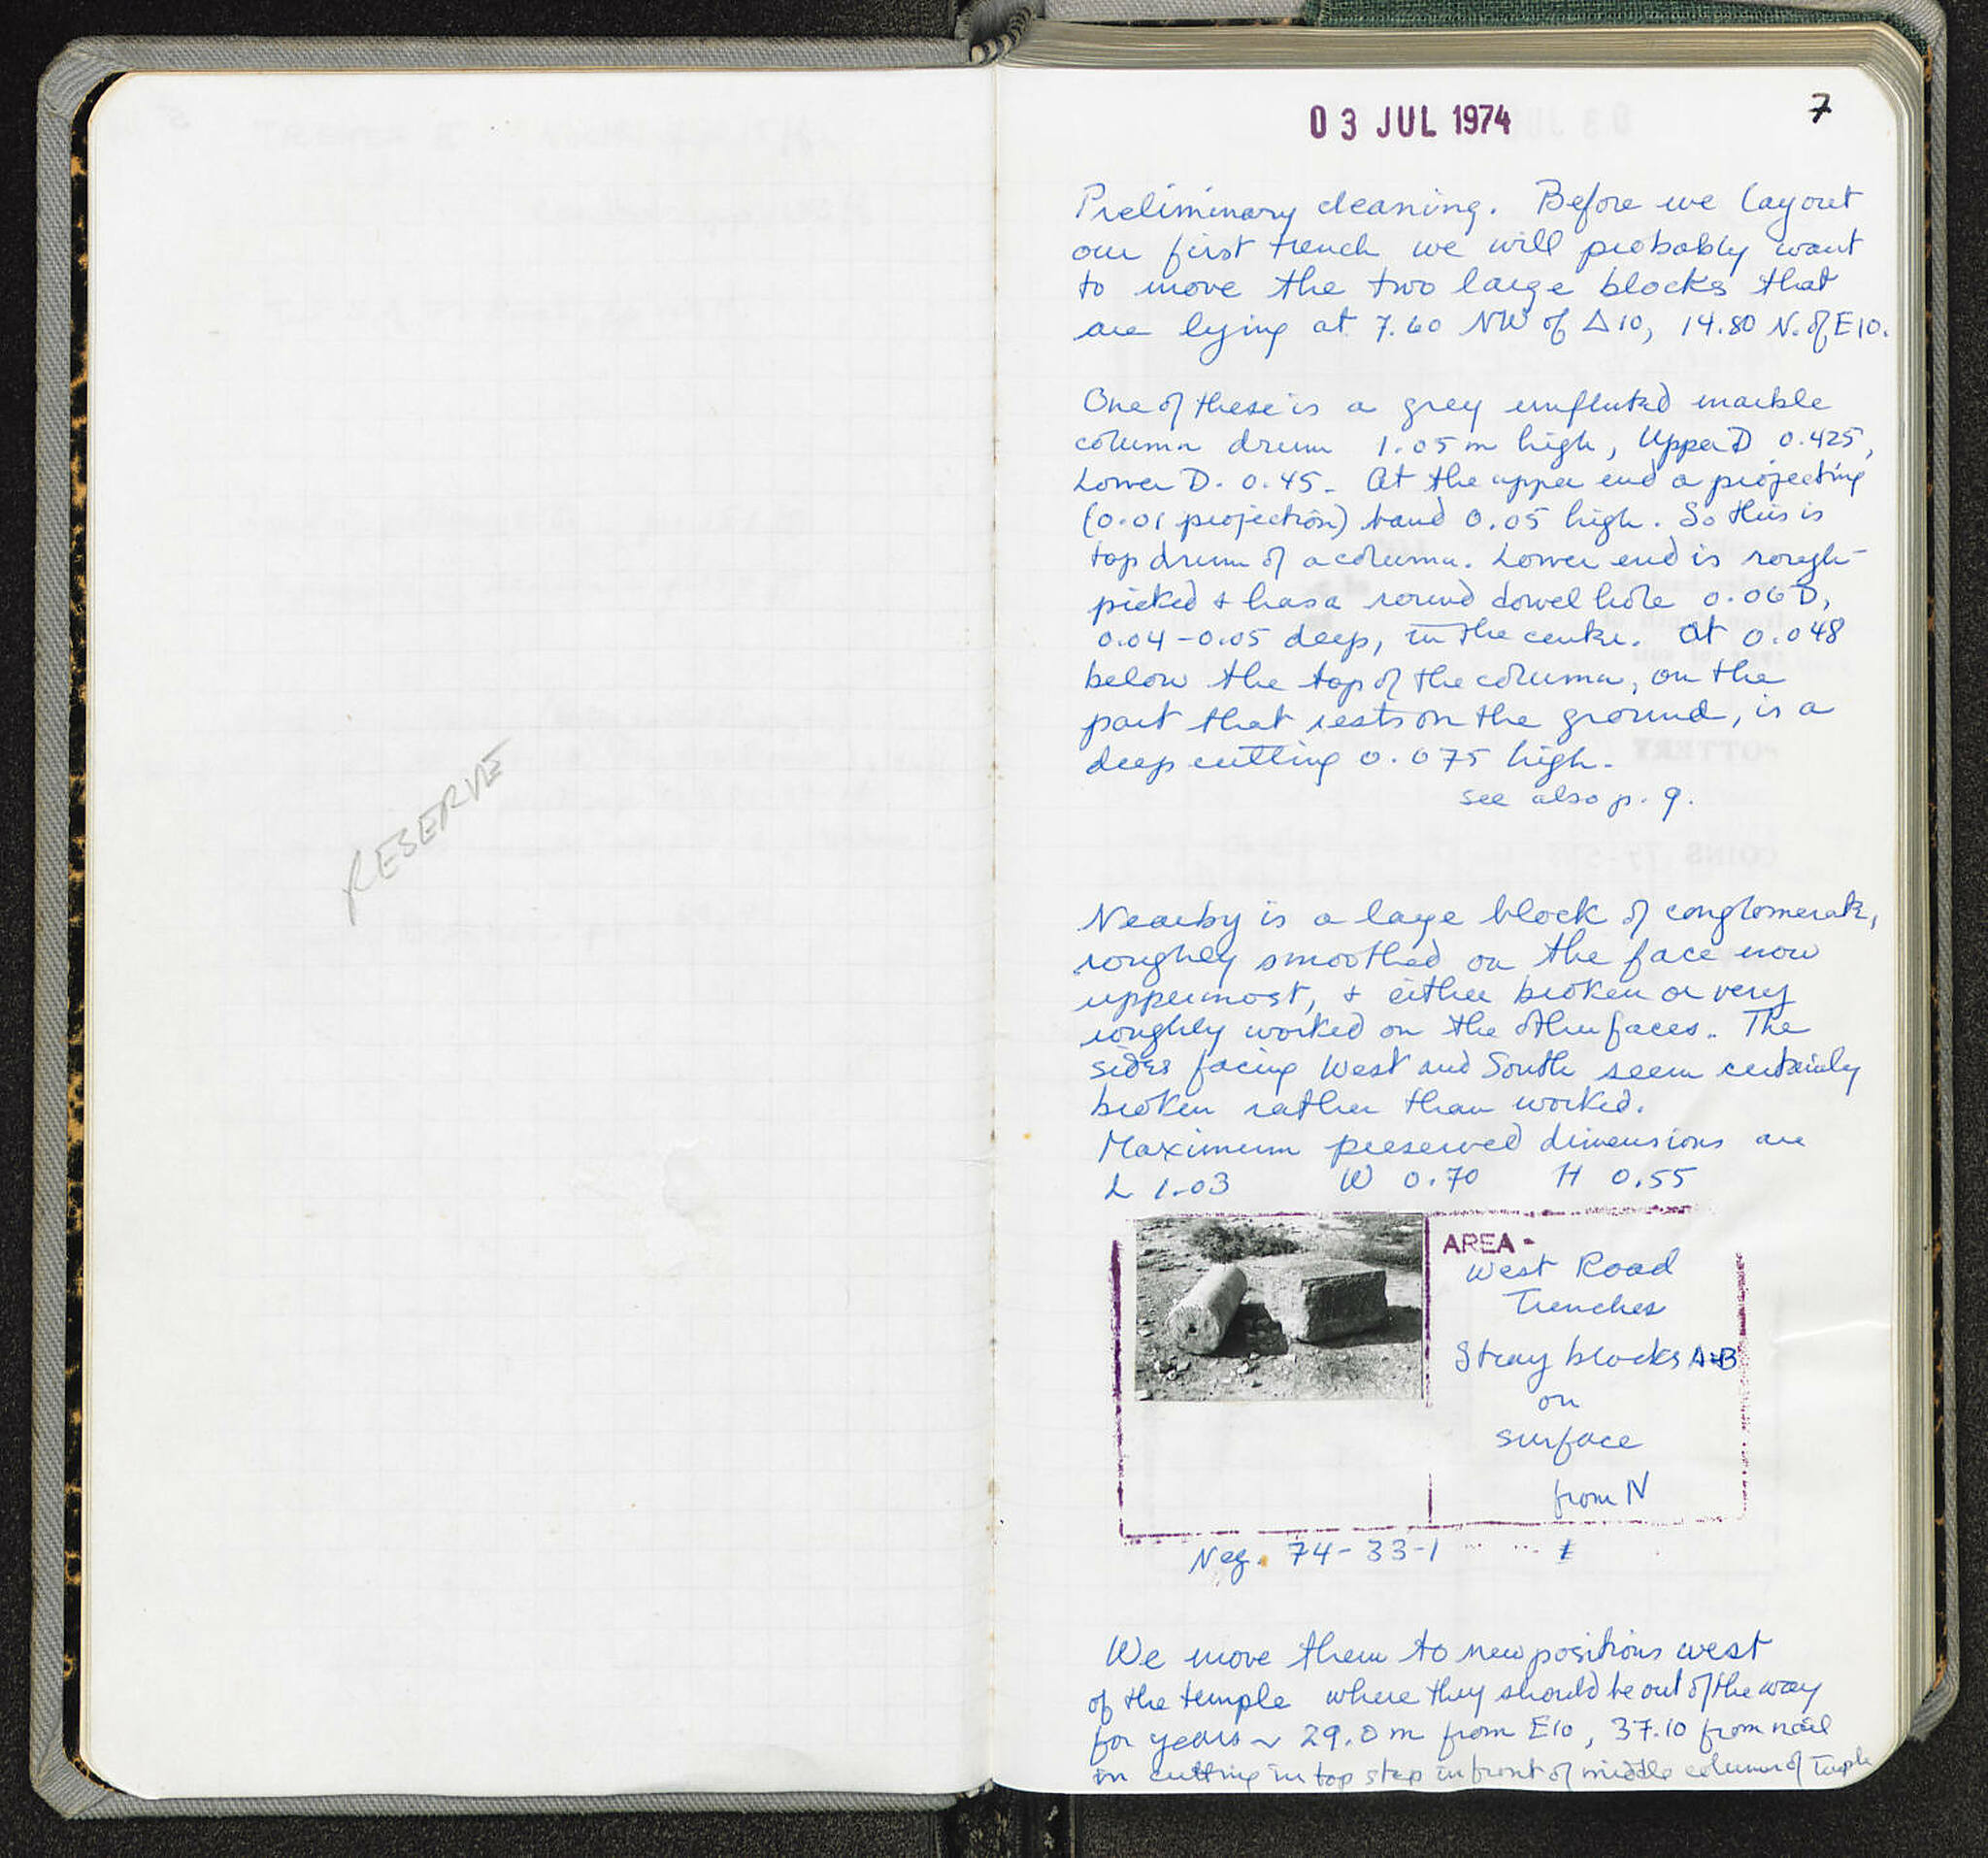 RESERVE
03 JUL 1974
7
Preliminary cleaning. Before we layout
our first trench we will probably want
to move the two large blocks that
are lying at 7.60 NW of Δ10, 14.80 N. of E10.
One of these is a grey unfluted marble
column drum 1.05 m high, Upper D 0.425,
Lower D. 0.45. At the upper end a projecting
(0.01 projection) band 0.05 high. So this is
top drum of a column. Lower end is rough-
picked + has a round dowel hole 0.06 D,
0.04-0.05 deep, in the centre. At 0.048
below the top of the column, on the
part that rests on the ground, is a
deep cutting 0.075 high.
see also p. 9.
Nearby is a large block of conglomerate,
roughly smoothed on the face now
uppermost, + either broken or very
roughly worked on the other faces. The
sides facing West and South seem certainly
broken rather than worked.
Maximum preserved dimensions are
L 1.03 W 0.70 H 0.55
AREA-
West Road
Trenches
Stray blocks A+B
on
surface
from N
Neg. 74-33-1
We move them to new positions west
of the temple where they should be out of the way
for years ~ 29.0 m from E10, 37.10 from nail
in cutting in top step in front of middle column of Temple